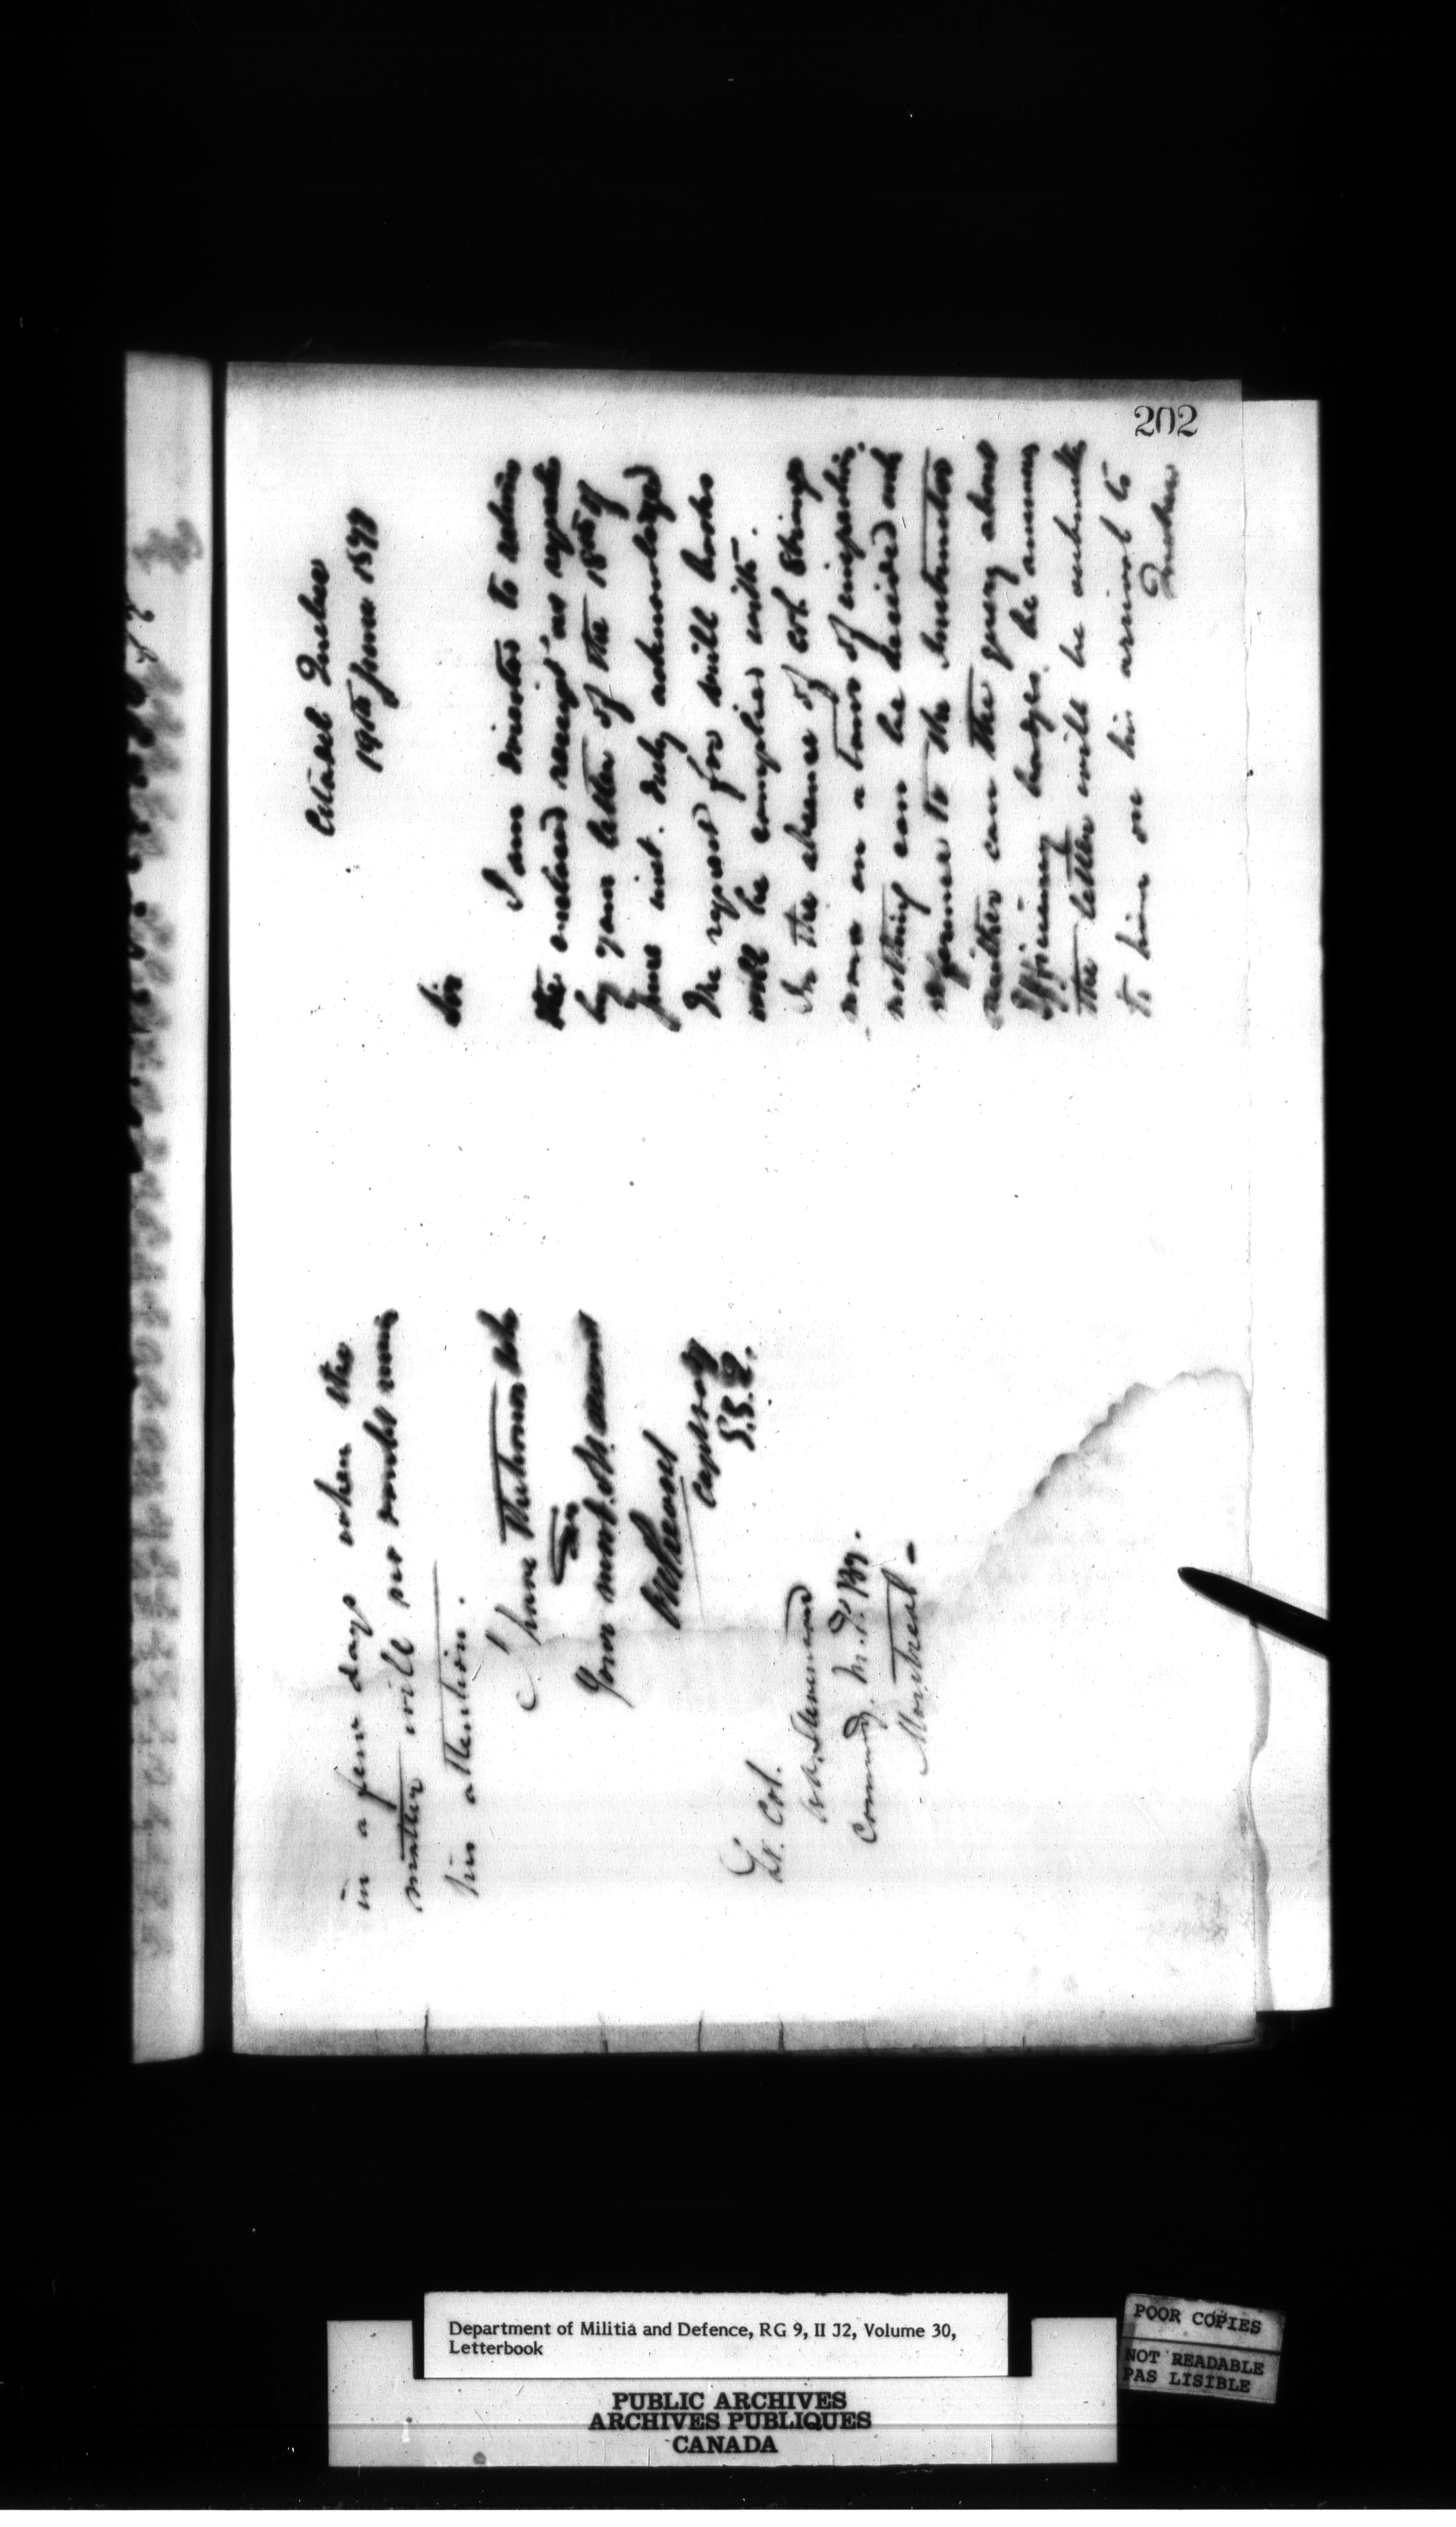 202
Citadel Quebec
19th June 1877
Sir
I am directed to return
the enclosed receipt as requested
by your letter of the 18th of
June inst. duly acknowledged
The request for drill books
will be complied with.
In the absence of Col. Strange
now on a tour of inspection.
nothing can be decided with
reference to the Instruction
neither can the query about
Efficiency badges be answered
the letter will be submitted
to him on his arrival to
Quebec
in a few days when the
matter will no doubt receive
his attention.
I have the honor to be
Sir
Your most obt. servant
Capt
S.G.
Lt. Col.
Commdg. M.
Montreal -
Department of Militia and Defence, RG 9, II J2, Volume 30,
Letterbook
PUBLIC ARCHIVES
ARCHIVES PUBLIQUES
CANADA
POOR COPIES
NOT READABLE
PAS LISIBLE